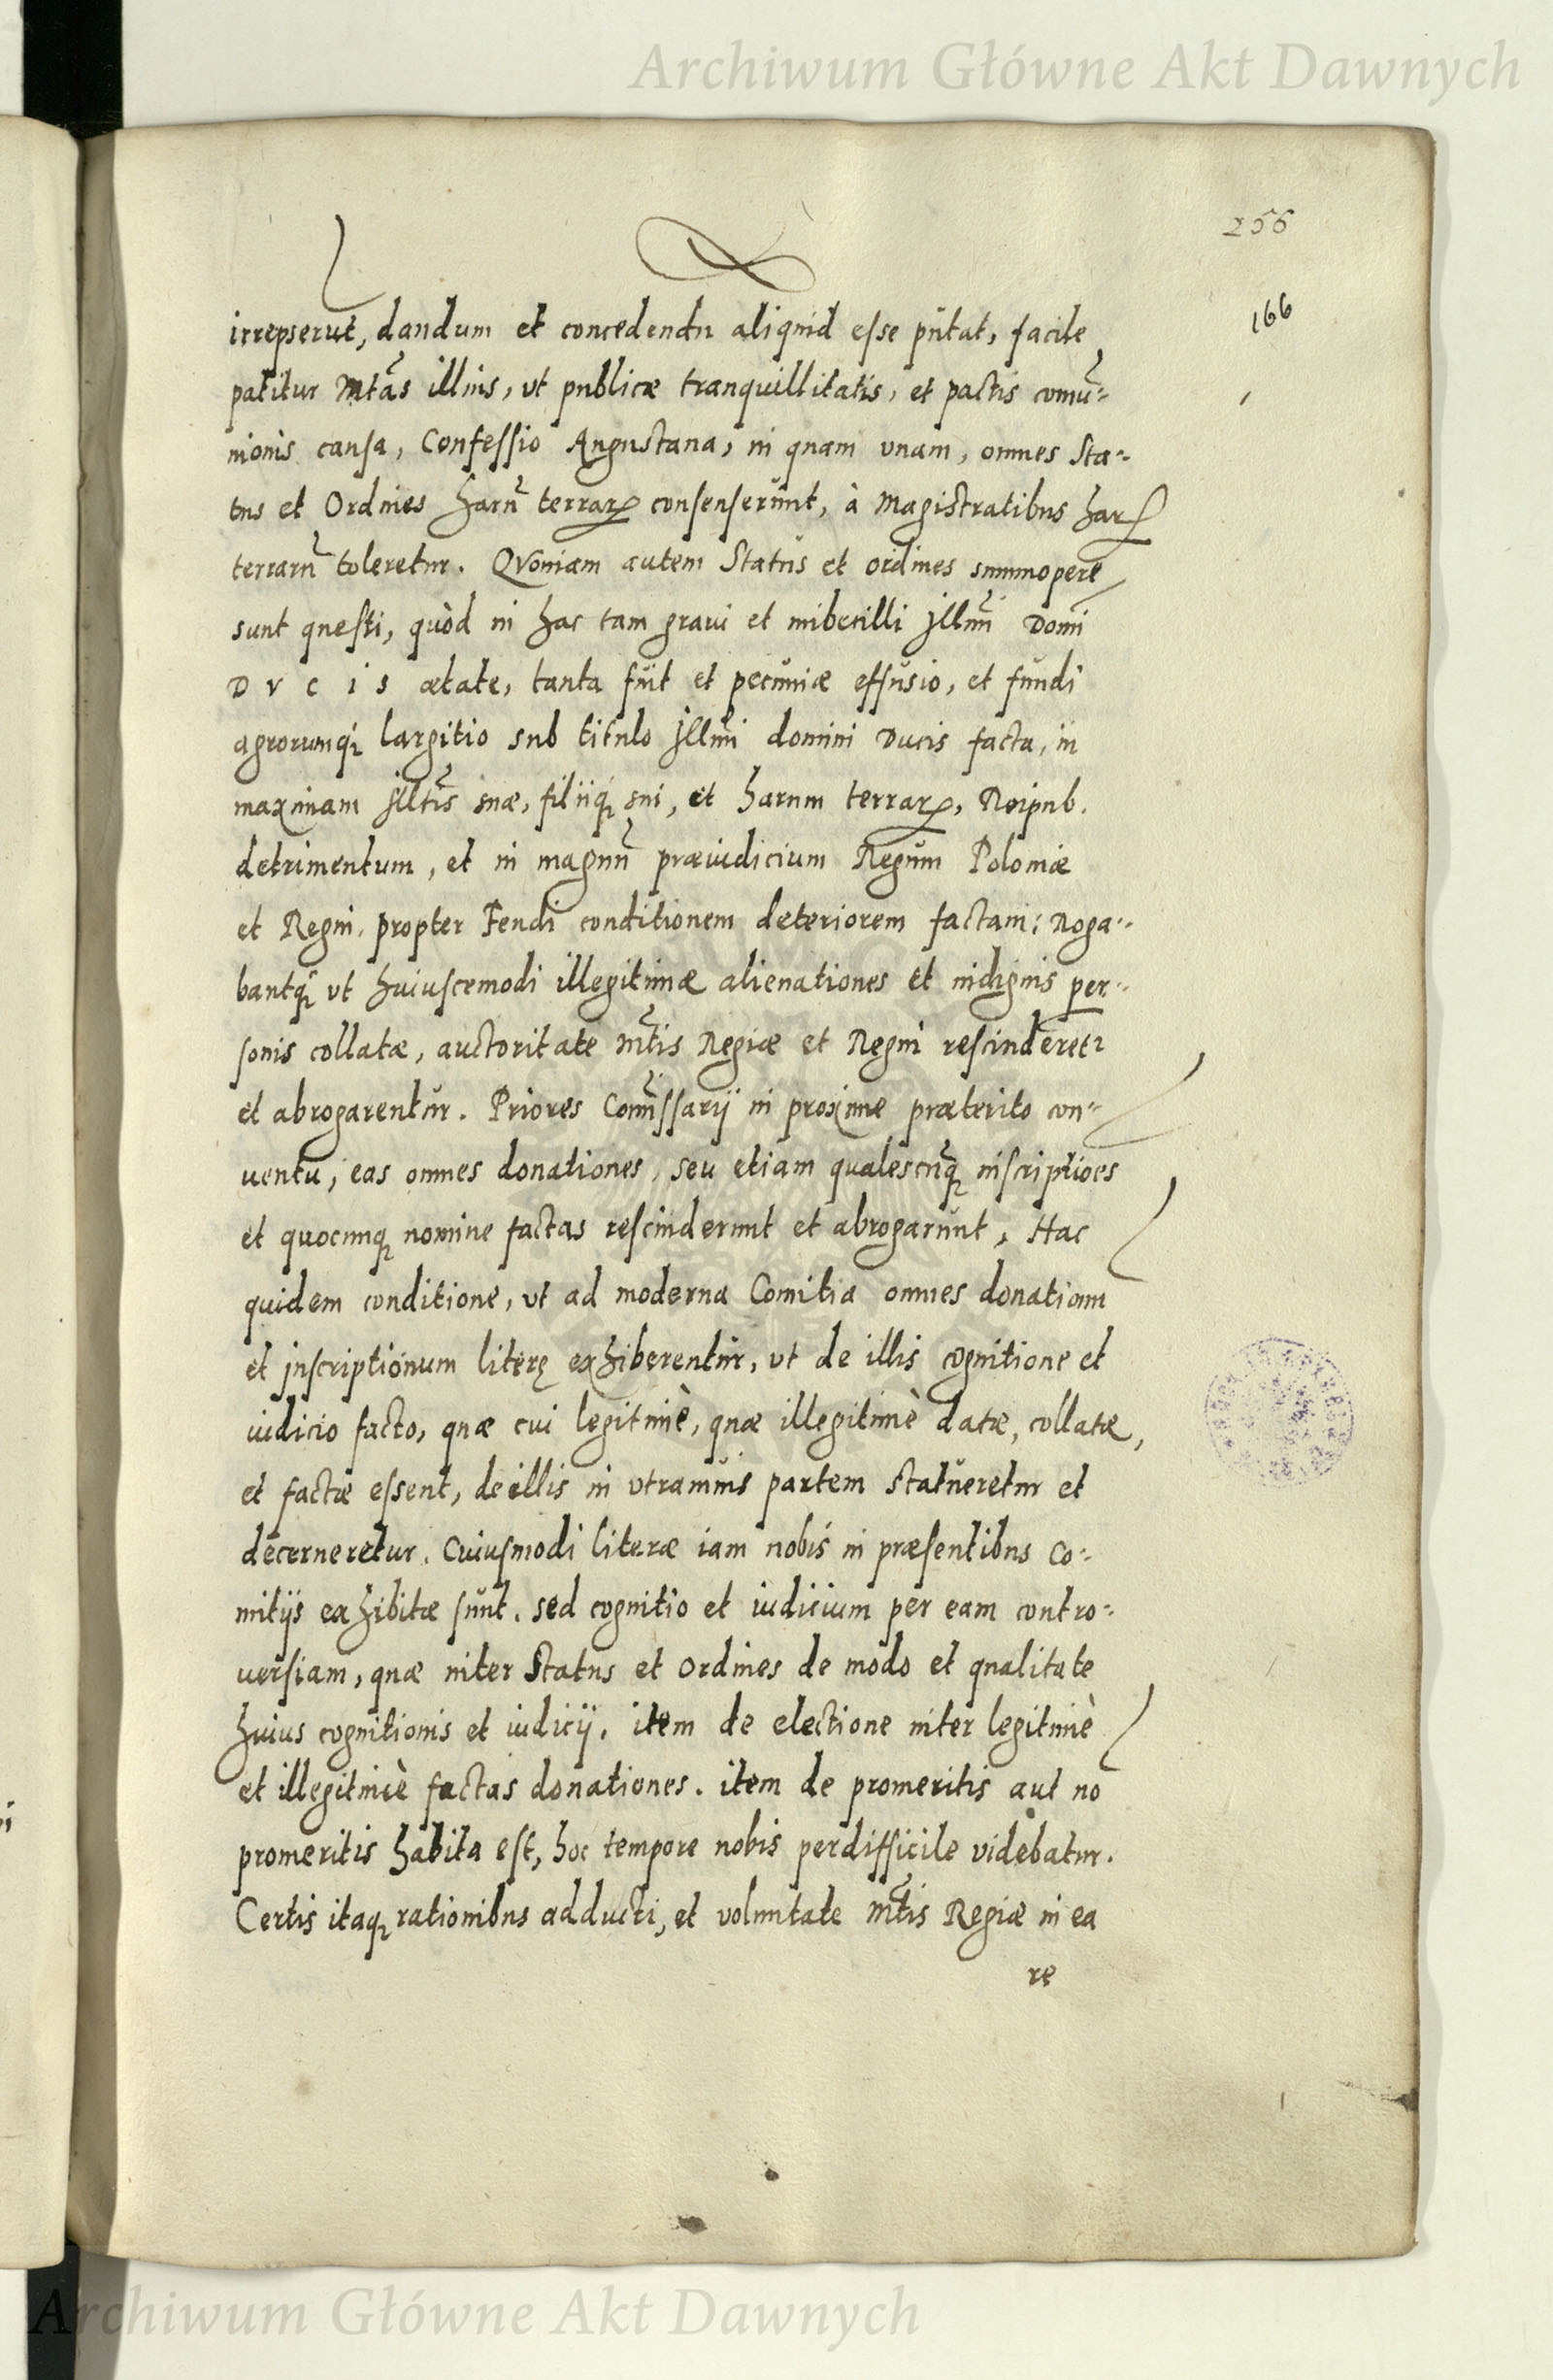 Archiwum Główne Akt Dawnych
256
166
irrepserūt, dandum et concedendū aliquid esse putat, facile
patitur Mtãs illius, ut publicæ tranquillitatis, et pactis comu᷃=
nionis causa, Confessio Augustana, in quam unam, omnes Sta=
tus et Ordines harũ terrarꝝ consenserunt, à Magistratibus harꝝ
terrarũ toleretur. Qvoniam autem Status et ordines summopere
sunt questi, quòd in hac tam graui et imbecilli Jllm̃i Domi
D v c i s ætate, tanta fuit et pecuniæ effusio, et fundi
agrorumq; largitio sub titulo Jllm̃i domini Ducis facta, in
maximam Jlltĩs suæ, filiiq; sui, et harum terrarꝝ, Reipub.
detrimentum, et in magnũ præiudicium Regum Poloniæ
et Regni, propter Feudi conditionem deteriorem factam: Roga=
bantq; ut huiuscemodi illegitimæ alienationes et indignis per=
sonis collatæ, auctoritate Mt̃is Regiæ et Regni rescinderet᷑
et abrogarentur. Priores Com̃issarij in proxime præterito con=
uentu, eas omnes donationes, seu etiam qualescũq; inscriptioēs
et quocunq; nomine factas resciderunt et abrogarunt, Hac
quidem conditione, ut ad moderna Comitia omnes donationum
et inscriptionum literę exhiberentur, ut de illis cognitione et
iudicio facto, quæ cui legitimè, quæ illegitimè datæ, collatæ,
et factæ essent, de illis in utramuis partem statueretur et
decerneretur. Cuiusmodi literæ iam nobis in præsentibus Co=
mitijs exhibitæ sunt. sed cognitio et iudicium per eam contro=
uersiam, quæ inter Status et Ordines de modo et qualitate
huius cognitionis et iudicij, item de electione inter legitimè
et illegitimè factas donationes. item de promeritis aut no
promeritis habita est, hoc tempore nobis perdifficile videbatur.
Certis itaq; rationibus adducti, et voluntate Mt̃is Regiæ in ea
re
Archiwum Główne Akt Dawnych